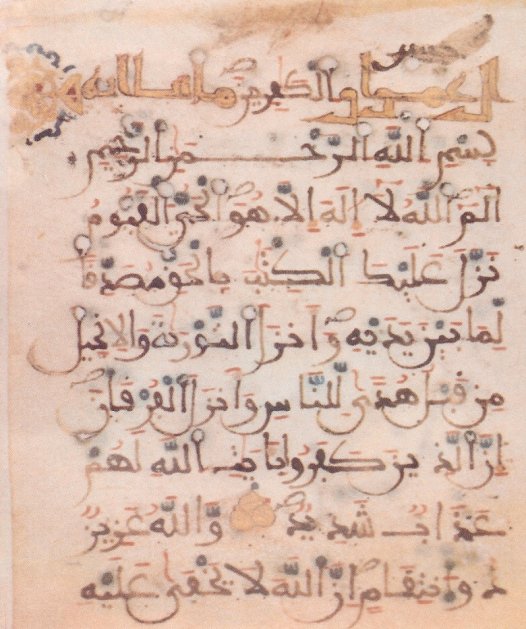 الكفرين
بسم الله الرحمن الرحيم
الم الله لا إله إلا هو الحي القيوم
نزل عليك الكتب بالحق مصدقا
لما بين يديه وأنزل التورية والإنجيل
من قبل هدى للناس وأنزل الفرقان
إن الذين كفروا بايت الله لهم
عذاب شديد والله عزيز
ذو انتقام إن الله لا يخفى عليه